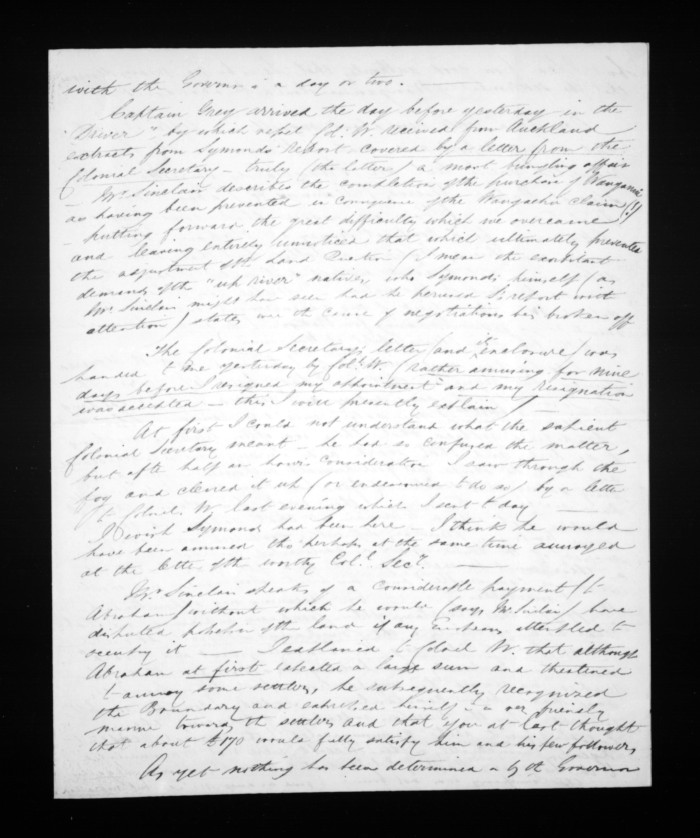 with the Governor in a day or two. —
Captain Grey arrived the day before yesterday in the
"Driver" by which vessel Col. W. received from Auckland
extracts from Symonds' Report covered by a letter from the
Colonial Secretary — truly (the latter) a most puzzling affair
— Mr Sinclair describes the completion of the purchase of Wanganui
as having been prevented in consequence of the Wangaehu claim (!)
— putting forward the great difficulty which we overcame
and leaving entirely unnoticed that which ultimately prevented
the adjustment of the Land Question (I mean the exorbitant
demands of the "up river" natives, who Symonds himself (as
Mr Sinclair might have seen had he perused his report with
attention) states were the cause of negotiations being broken off
The Colonial Secretary's letter (and its enclosure) was
handed to me yesterday by Col. W. (rather amusing for nine
days before I resigned my appointment and my resignation
was accepted — this I will presently explain) —
At first I could not understand what the sapient
Colonial Secretary meant — he had so confused the matter,
but after half an hour's consideration I saw through the
fog and cleared it up (or endeavoured to do so) by a letter
to Colonel W. last evening which I sent to day —
I wish Symonds had been here — I think he would
have been amused tho' perhaps at the same time annoyed
at the letter of the worthy Col. Secy. —
Mr Sinclair speaks of a considerable payment (to
Abraham) without which he would (says Mr Sinclair) have
disputed possession of the land if any Europeans attempted to
occupy it — I explained to Colonel W. that although
Abraham at first expected a large sum and threatened
to annoy some settlers, he subsequently recognized
the Boundary and expressed himself in a very friendly
manner towards the settlers and that you at last thought
that about £170 would fully satisfy him and his few followers
As yet nothing has been determined on by the Governor